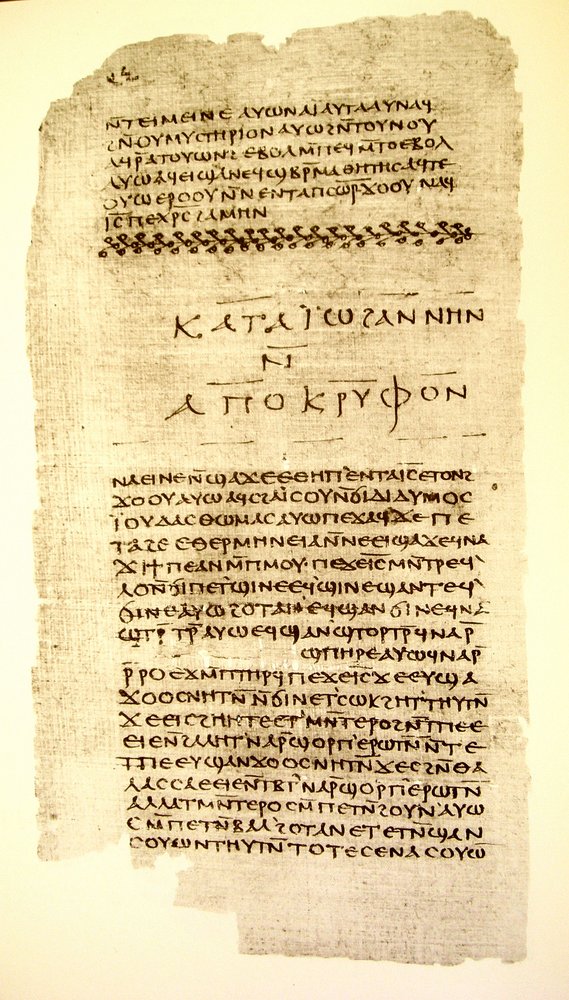 ⲛ̄ⲧⲉⲓⲙⲉⲓⲛⲉ ⲁⲩⲱ ⲛⲁⲓ ⲁⲩⲧⲁⲁⲩ ⲛⲁϥ
ϩⲛ̄ ⲟⲩⲙⲩⲥⲧⲏⲣⲓⲟⲛ ⲁⲩⲱ ϩⲛ̄ⲧⲟⲩⲛⲟⲩ
ⲁϥⲣ̄ⲁⲧⲟⲩⲱⲛϩ ⲉⲃⲟⲗ ⲙ̄ⲡⲉϥⲙ̄ⲧⲟ ⲉⲃⲟⲗ
ⲁⲩⲱ ⲁϥⲉⲓ ϣⲁ ⲛⲉϥϣⲃⲣ̄ⲙⲁⲑⲏⲧⲏⲥ ⲁϥⲧⲉ
ⲟⲩⲱ ⲉⲣⲟⲟⲩ ⲛ̄ⲛⲉⲛⲧⲁⲡⲥⲱ̄ⲣ̄ ϫⲟⲟⲩ ⲛⲁϥ
ⲓ̄ⲥ̄ ⲡⲉⲭⲣ̄ⲥ̄ ϩⲁⲙⲏⲛ
ⲕⲁⲧⲁ ⲓ̈ⲱϩⲁⲛⲛⲏⲛ
ⲛ̄
ⲁⲡⲟⲕⲣⲩⲫⲟⲛ
ⲛⲁⲉⲓ ⲛⲉ ⲛ̄ϣⲁϫⲉ ⲉⲑⲏⲡ ⲉⲛⲧⲁⲓ̄ⲥ̄ ⲉⲧⲟⲛϩ
ϫⲟⲟⲩ ⲁⲩⲱ ⲁϥⲥϩⲁⲓⲥⲟⲩ ⲛ̄ϭⲓ ⲇⲓⲇⲩⲙⲟⲥ
ⲓ̈ⲟⲩⲇⲁⲥ ⲑⲱⲙⲁⲥ ⲁⲩⲱ ⲡⲉϫⲁϥ ϫⲉ ⲡⲉ
ⲧⲁϩⲉ ⲉⲑⲉⲣⲙⲏⲛⲉⲓⲁ ⲛ̄ⲛⲉⲉⲓϣⲁϫⲉ ϥⲛⲁ
ϫⲓ ϯⲡⲉ ⲁⲛ ⲙ̄ⲡⲙⲟⲩ· ⲡⲉϫⲉ ⲓ̄ⲥ̄ ⲙⲛ̄ⲧⲣⲉϥ
ⲗⲟ ⲛ̄ϭⲓ ⲡⲉⲧϣⲓⲛⲉ ⲉϥϣⲓⲛⲉ ϣⲁⲛⲧⲉϥ
ϭⲓⲛⲉ ⲁⲩⲱ ϩⲟⲧⲁⲛ ⲉϥϣⲁⲛϭⲓⲛⲉ ϥⲛⲁ
ϣⲧⲣ̄ⲧⲣ̄ ⲁⲩⲱ ⲉϥϣⲁⲛϣⲧⲟⲣⲧⲣ̄ ϥⲛⲁⲣ̄
ϣⲡⲏⲣⲉ ⲁⲩⲱ ϥⲛⲁⲣ̄
ⲣ̄ⲣⲟ ⲉϫⲙ̄ ⲡⲧⲏⲣϥ ⲡⲉϫⲉ ⲓ̄ⲥ̄ ϫⲉ ⲉⲩϣⲁ
ϫⲟⲟⲥ ⲛⲏⲧⲛ̄ ⲛ̄ϭⲓ ⲛⲉⲧⲥⲱⲕ ϩⲏⲧ ⲑⲏⲩⲧⲛ̄
ϫⲉ ⲉⲓⲥϩⲏⲏⲧⲉ ⲉⲧⲙⲛ̄ⲧⲉⲣⲟ ϩⲛ̄ ⲧⲡⲉ ⲉ
ⲉⲓⲉ ⲛ̄ϩⲁⲗⲏⲧ ⲛⲁⲣ̄ϣⲟⲣⲡ ⲉⲣⲱⲧⲛ̄ ⲛ̄ⲧⲉ
ⲧⲡⲉ ⲉⲩϣⲁⲛϫⲟⲟⲥ ⲛⲏⲧⲛ̄ ϫⲉ ⲥϩⲛ̄ ⲑⲁ
ⲗⲁⲥⲥⲁ ⲉⲉⲓⲉ ⲛ̄ⲧⲃⲧ ⲛⲁⲣ̄ϣⲟⲣⲡ ⲉⲣⲱⲧⲛ̄
ⲁⲗⲗⲁ ⲧⲙⲛ̄ⲧⲉⲣⲟ ⲥⲙ̄ⲡⲉⲧⲛ̄ϩⲟⲩⲛ ⲁⲩⲱ
ⲥⲙ̄ⲡⲉⲧⲛ̄ⲃⲁⲗ ϩⲟⲧⲁⲛ ⲉⲧⲉⲧⲛ̄ϣⲁⲛ
ⲥⲟⲩⲱⲛ ⲧⲏⲩⲧⲛ̄ ⲧⲟⲧⲉ ⲥⲉⲛⲁⲥⲟⲩⲱ